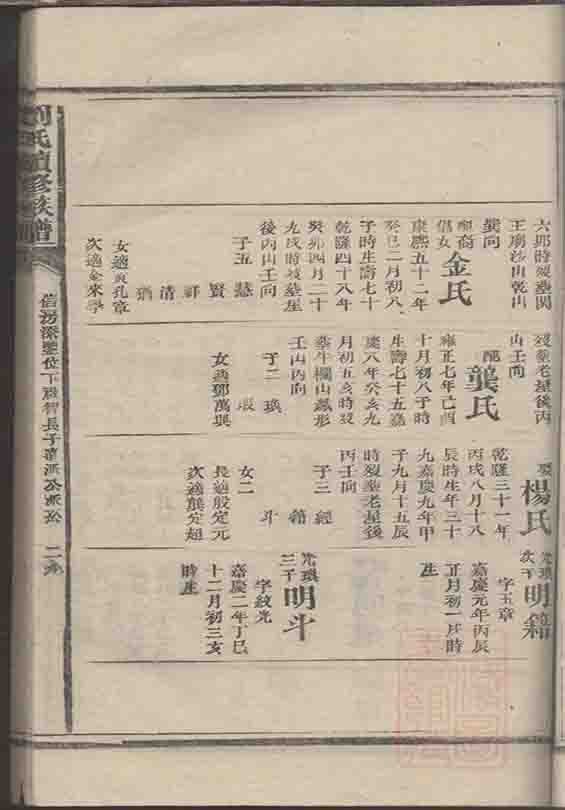 六卯時歿塟閔
王廟沙山乾山
巽向
配喬 金氏
信女
康熙五十二年
癸巳二月初八
子時生壽七十
乾隆四十八年
癸卯四月二十
九戌時歿塟星
後丙山壬向
子五 慧
賢
祥
清
猶
女適黃孔章
次適金來學
歿塟老屋後丙
山壬向
配 龔氏
雍正七年己酉
十月初八子時
生壽七十五嘉
慶八年癸亥九
月初五亥時歿
塟牛欄山鳳形
壬山丙向
子二 璜
瑕
女適鄧萬興
娶 楊氏
乾隆三十一年
丙戌八月十八
辰時生年三十
九嘉慶九年甲
子九月十五辰
時歿塟老屋後
丙壬向
子三 經
籍
斗
女二
長適殷定元
次適龔定超
光璜
次子 明籍
字玉章
嘉慶元年丙辰
正月初一戌時
生
光璜
三子 明斗
字紋光
嘉慶二年丁巳
十二月初三亥
時生
劉氏續修族譜
二